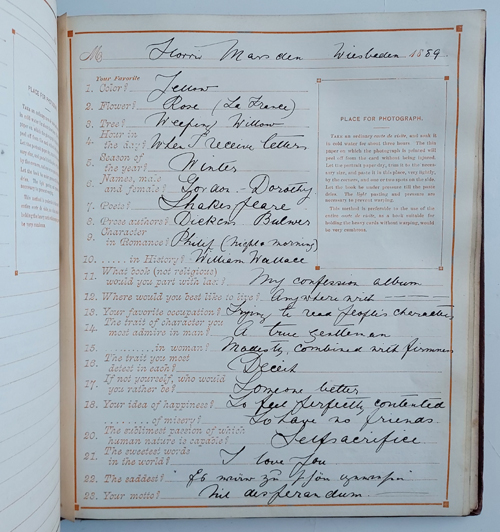 M Florrie Marsden Wiesbaden 1889
Your Favorite
1. Color? Yellow
2. Flower? Rose (La France)
3. Tree? Weeping Willow
4. Hour in the day? When I receive letters
5. Season of the year? Winter
6. Names, male and female? Gordon - Dorothy
7. Poets? Shakespeare
8. Prose authors? Dickens Bulwer
9. Character in Romance? Philip (Night & morning)
10. ...... in History? William Wallace
11. What book (not religious) would you part with last? My confession album
12. Where would you best like to live? Anywhere with — —
13. Your favorite occupation? Trying to read people's characters
14. The trait of character you most admire in man? A true gentleman
15. ........... in woman? Modesty, combined with firmness
16. The trait you most detest in each? Deceit
17. If not yourself, who would you rather be? Someone better
18. Your idea of happiness? To feel perfectly contented
19. ........ of misery? To have no friends.
20. The sublimest passion of which human nature is capable? Self sacrifice.
21. The sweetest words in the world? I love you
22. The saddest?
23. Your motto? Nil desperandum.
PLACE FOR PHOTOGRAPH.
Take an ordinary carte de visite, and soak it
in cold water for about three hours. The thin
paper on which the photograph is printed will
peel off from the card without being injured.
Let the
This method is preferable to the use of the
entire carte de visite, as a book suitable for
holding the heavy cards without warping, would
be very cumbrous.
PLACE FOR PHOTOGRAPH.